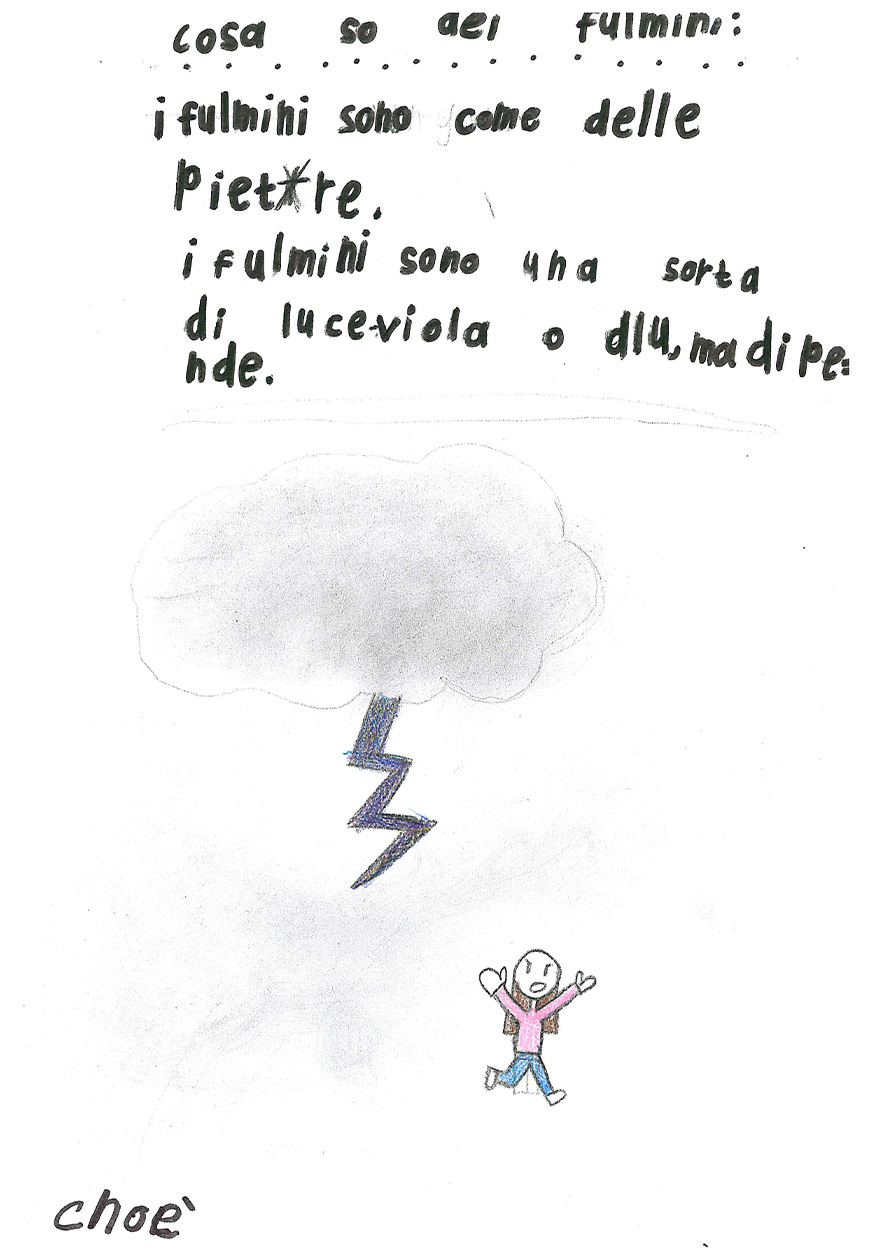 cosa so dei fulmini:
i fulmini sono come delle
pietre.
i fulmini sono una sorta
di luce viola o dlu, ma dipe=
nde.
choè